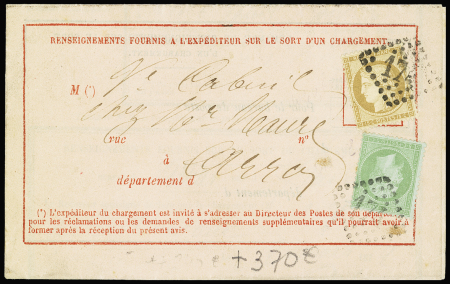 RENSEIGNEMENTS FOURNIS A L'EXPÉDITEUR SUR LE SORT D'UN CHARGEMENT.
M (*)
chez Mr
rue nº
à
département d
(*) L'expéditeur du chargement est invité à s'adresser au Directeur des Postes de son département
pour les réclamations ou les demandes de renseignements supplémentaires qu'il pourrait avoir à
former après la réception du présent avis.
+370€